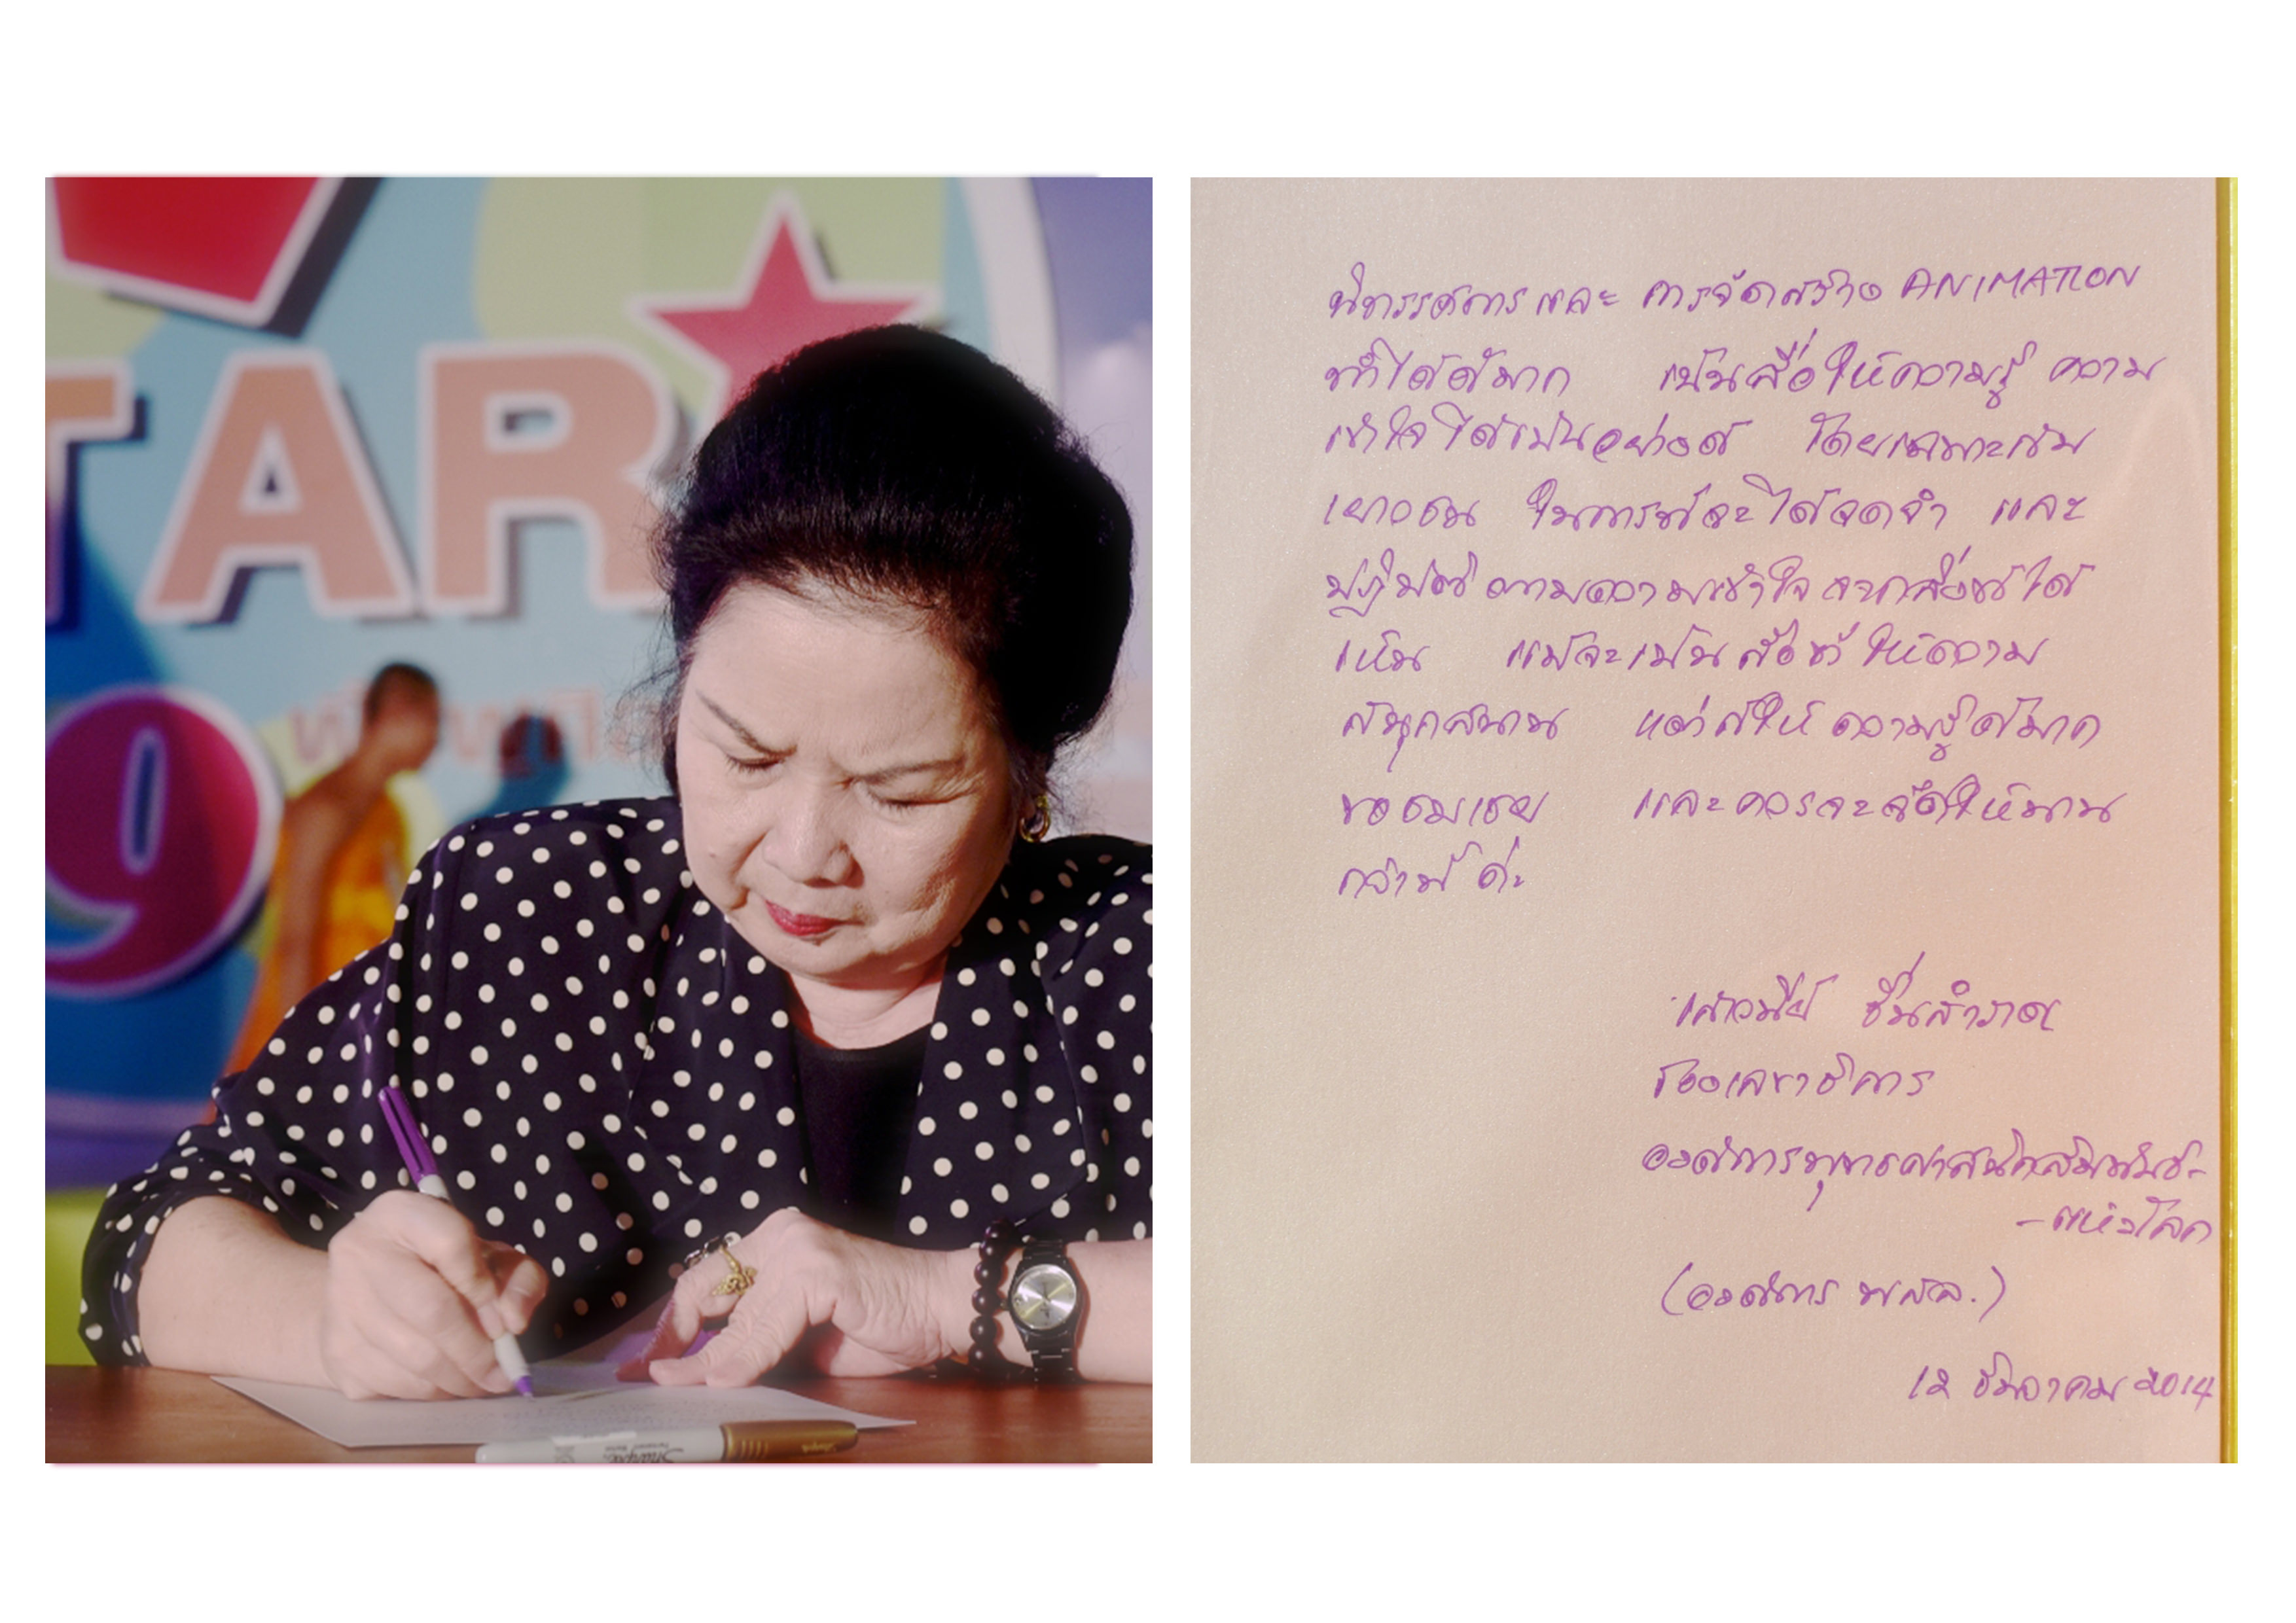 TAR
9
นิทรรศการและ การจัดสร้าง ANIMATION
ทำได้ดีมาก เป็นสื่อให้ความรู้ ความ
เข้าใจได้เป็นอย่างดี โดยเฉพาะกับ
เยาวชน ในการที่จะได้จดจำ และ
ปฏิบัติ ตามความเข้าใจ จากสิ่งที่ได้
เห็น แม้จะเป็นสื่อที่ให้ความ
สนุกสนาน แต่ก็ให้ ความรู้ดีมาก
ขอชมเชย และควรจะจัดให้นาน
กว่านี้ ค่ะ
เสาวนีย์ ชื่นสำราญ
รองเลขาธิการ
องค์การพุทธศาสนิกสัมพันธ์-
-แห่งโลก
(องค์การ พสล.)
12 ธันวาคม 2014